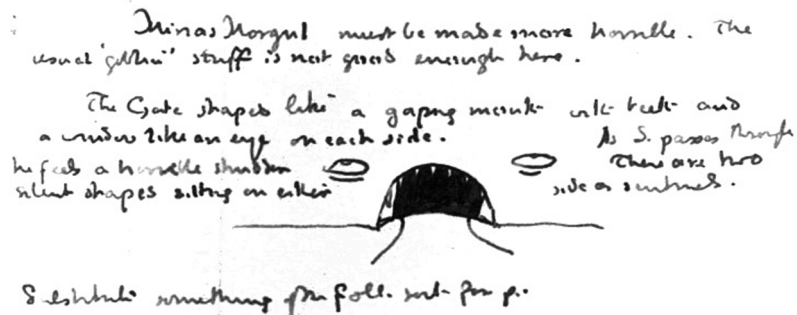 Minas Morgul must be made more horrible. The
usual 'goblin' stuff is not good enough here.
The Gate shaped like a gaping mouth with teeth and
a window like an eye on each side.
As S. passes through
he feels a horrible shudder. There are two
silent shapes sitting on either side as sentinels.
Substitute something of the foll. sort for p.